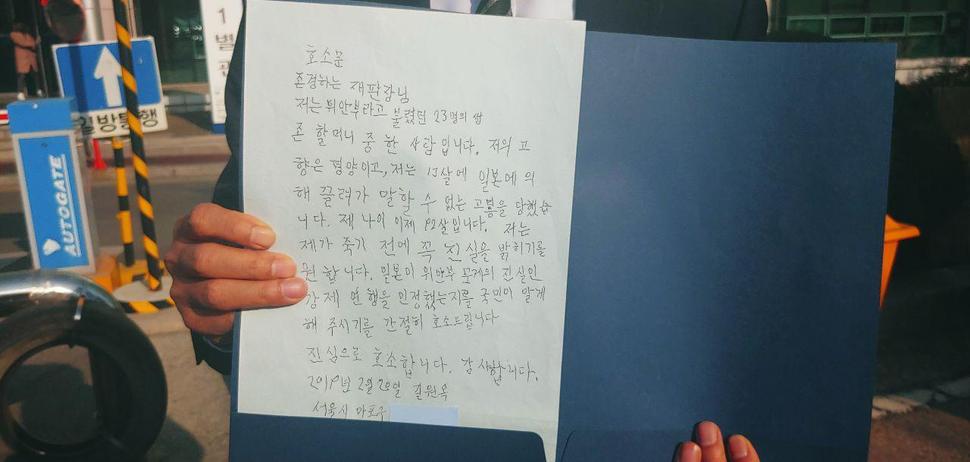 1
별
일방통행
AUTOGATE
호소문
존경하는 재판장님
저는 위안부라고 불렸던 23명의 생
존 할머니 중 한 사람입니다. 저의 고
향은 평양이고, 저는 13살에 일본에 의
해 끌려가 말할 수 없는 고통을 당했습
니다. 제 나이 이제 92살입니다. 저는
제가 죽기 전에 꼭 진실을 밝히기를
원합니다. 일본이 위안부 문제의 진실인
강제 연행을 인정했는지를 국민이 알게
해 주시기를 간절히 호소드립니다
진심으로 호소합니다. 감사합니다.
2019년 2월 20일 길원옥
서울시 마포구